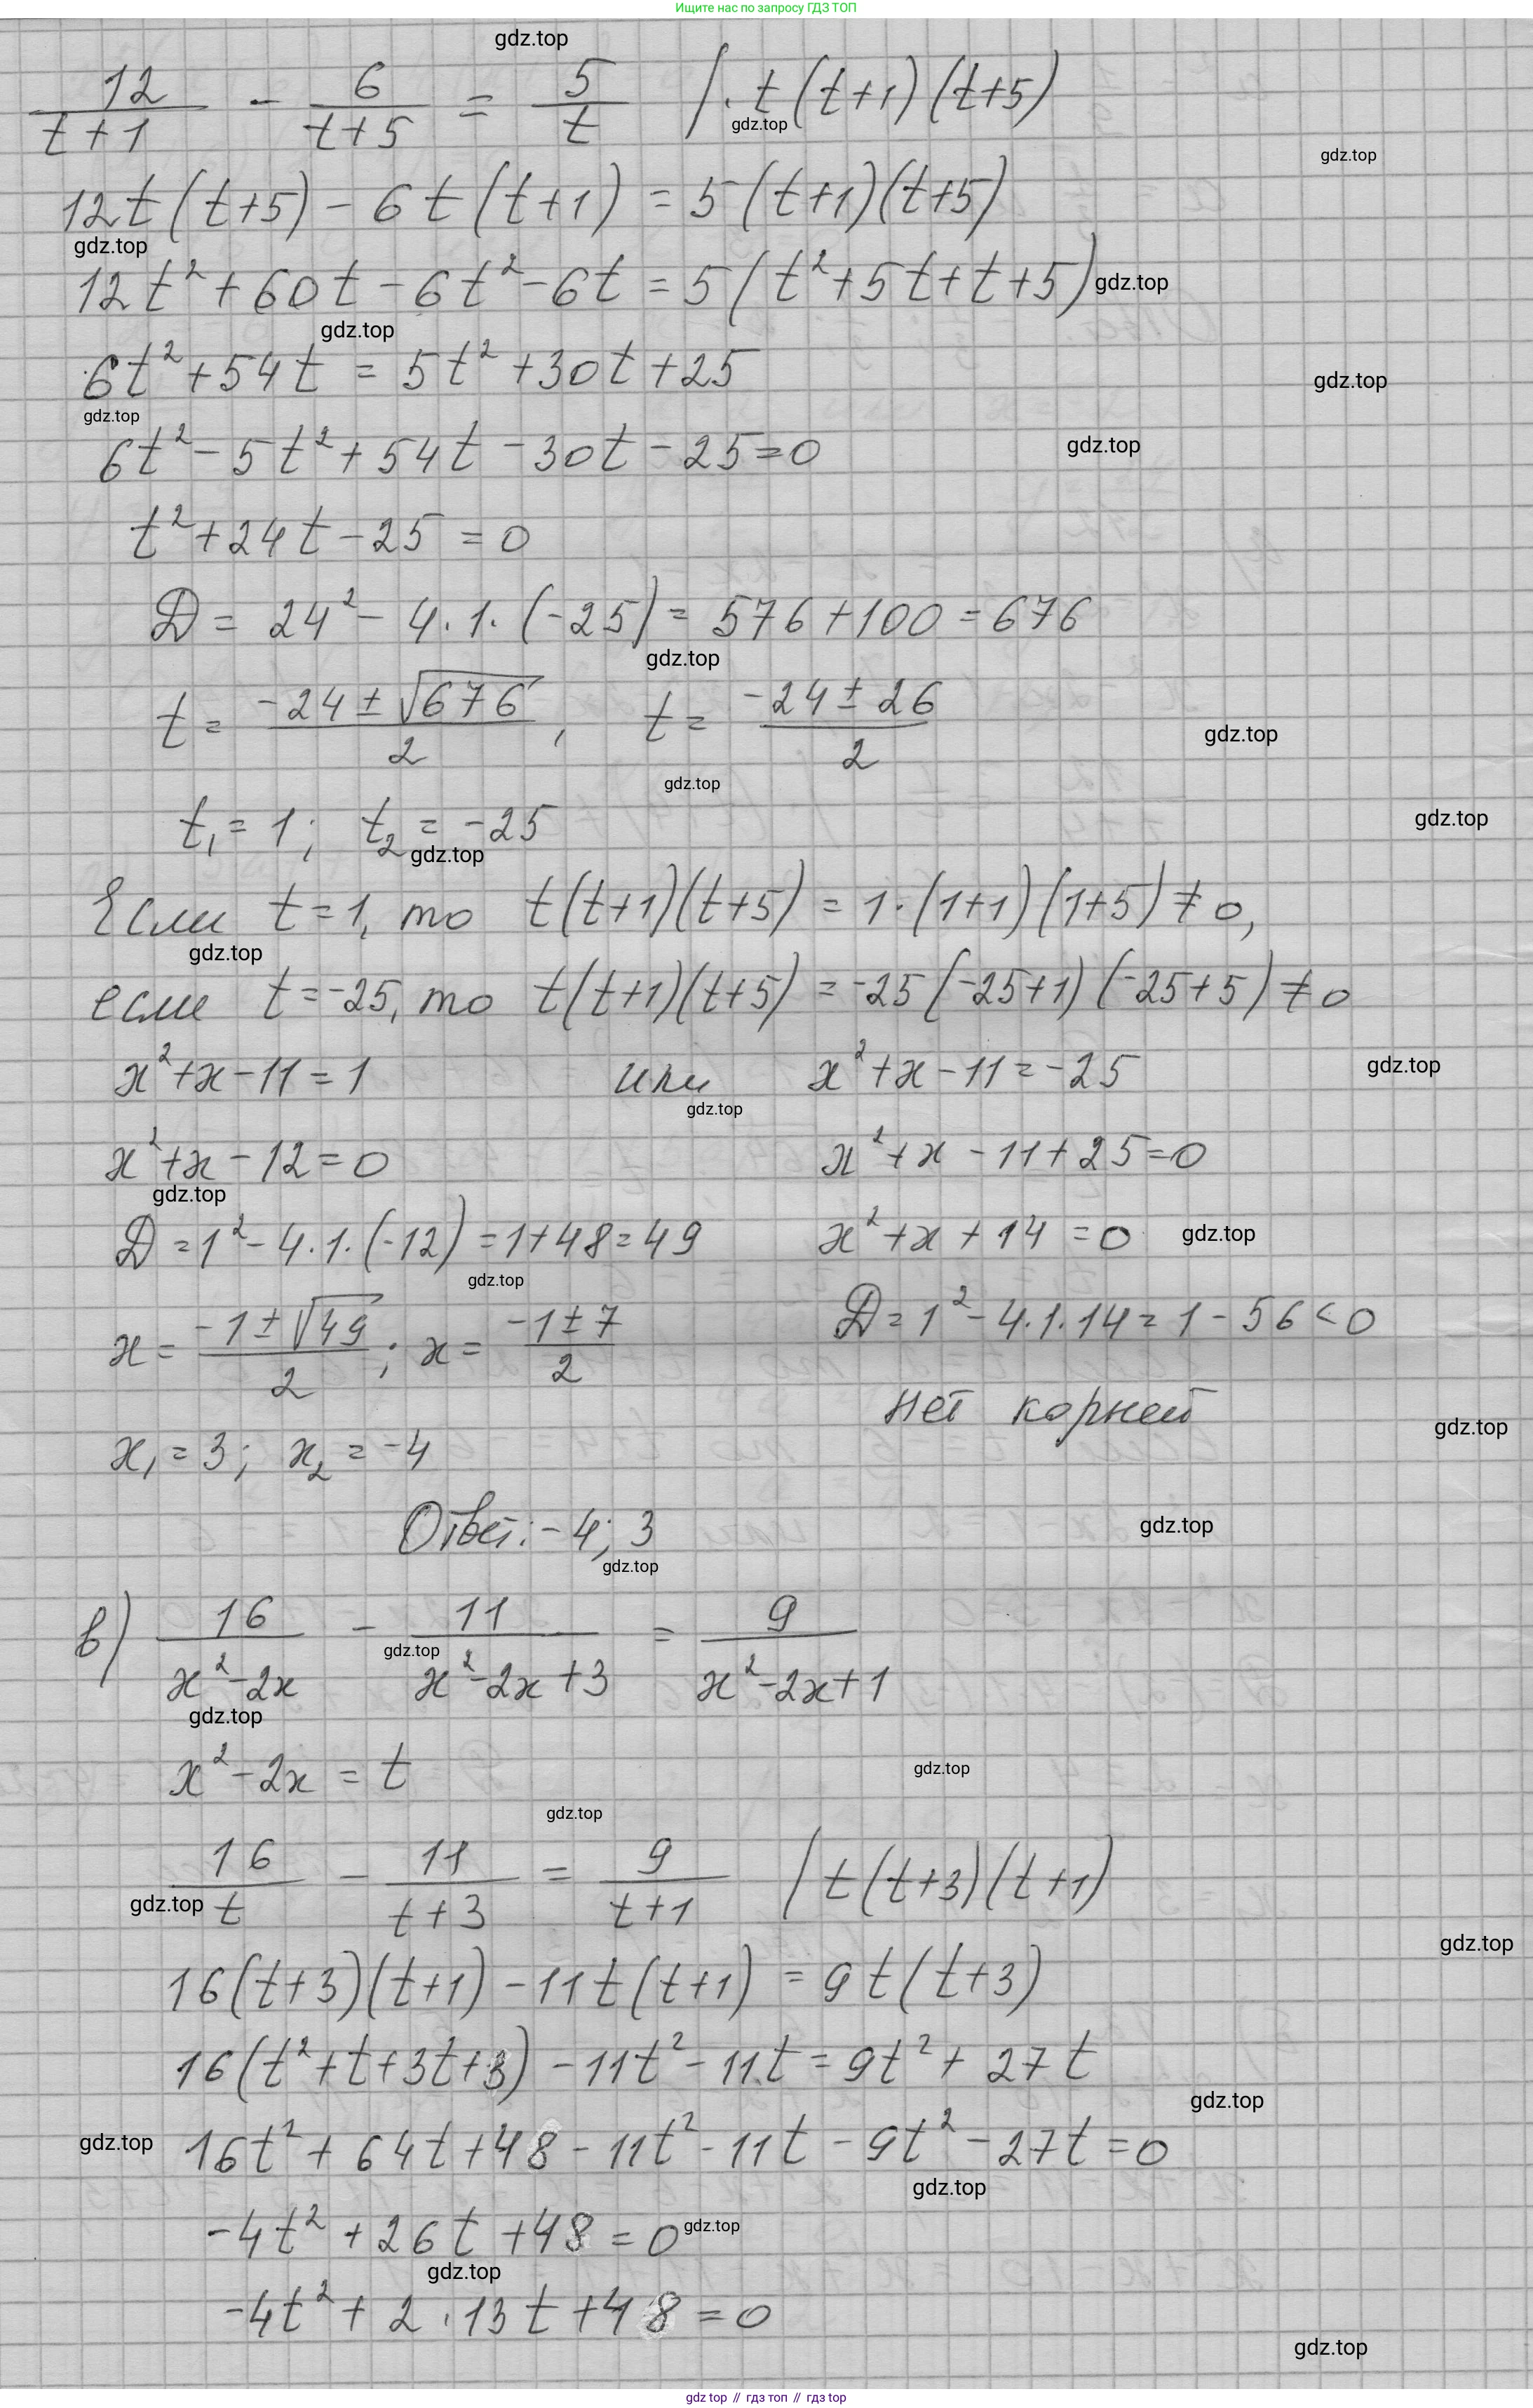 Ищите нас по запросу ГДЗ ТОП
gdz.top
12/(t+1) - 6/(t+5) = 5/t |· t(t+1)(t+5)
gdz.top
gdz.top
12t(t+5) - 6t(t+1) = 5(t+1)(t+5)
gdz.top
12t² + 60t - 6t² - 6t = 5(t² + 5t + t + 5)
gdz.top
gdz.top
6t² + 54t = 5t² + 30t + 25
gdz.top
gdz.top
6t² - 5t² + 54t - 30t - 25 = 0
gdz.top
t² + 24t - 25 = 0
D = 24² - 4·1·(-25) = 576 + 100 = 676
gdz.top
t = (-24 ± √676)/2, t = (-24 ± 26)/2
gdz.top
gdz.top
t₁ = 1; t₂ = -25
gdz.top
gdz.top
Если t = 1, то t(t+1)(t+5) = 1·(1+1)(1+5) ≠ 0,
gdz.top
если t = -25, то t(t+1)(t+5) = -25(-25+1)(-25+5) ≠ 0
x² + x - 11 = 1 или x² + x - 11 = -25
gdz.top
gdz.top
x² + x - 12 = 0 x² + x - 11 + 25 = 0
gdz.top
D = 1² - 4·1·(-12) = 1 + 48 = 49 x² + x + 14 = 0
gdz.top
gdz.top
x = (-1 ± √49)/2; x = (-1 ± 7)/2 D = 1² - 4·1·14 = 1 - 56 < 0
нет корней
gdz.top
x₁ = 3; x₂ = -4
Ответ: -4; 3
gdz.top
gdz.top
в) 16/(x²-2x) - 11/(x²-2x+3) = 9/(x²-2x+1)
gdz.top
gdz.top
x² - 2x = t
gdz.top
gdz.top
16/t - 11/(t+3) = 9/(t+1) | t(t+3)(t+1)
gdz.top
gdz.top
16(t+3)(t+1) - 11t(t+1) = 9t(t+3)
16(t² + t + 3t + 3) - 11t² - 11t = 9t² + 27t
gdz.top
gdz.top
16t² + 64t + 48 - 11t² - 11t - 9t² - 27t = 0
gdz.top
-4t² + 26t + 48 = 0
gdz.top
gdz.top
-4t² + 2·13t + 48 = 0
gdz.top
gdz top // гдз топ // гдз top